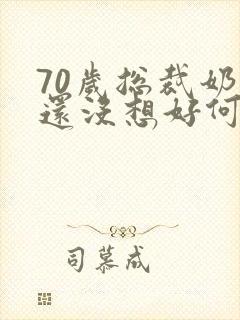 70歲總裁奶
還沒想好何
司慕成